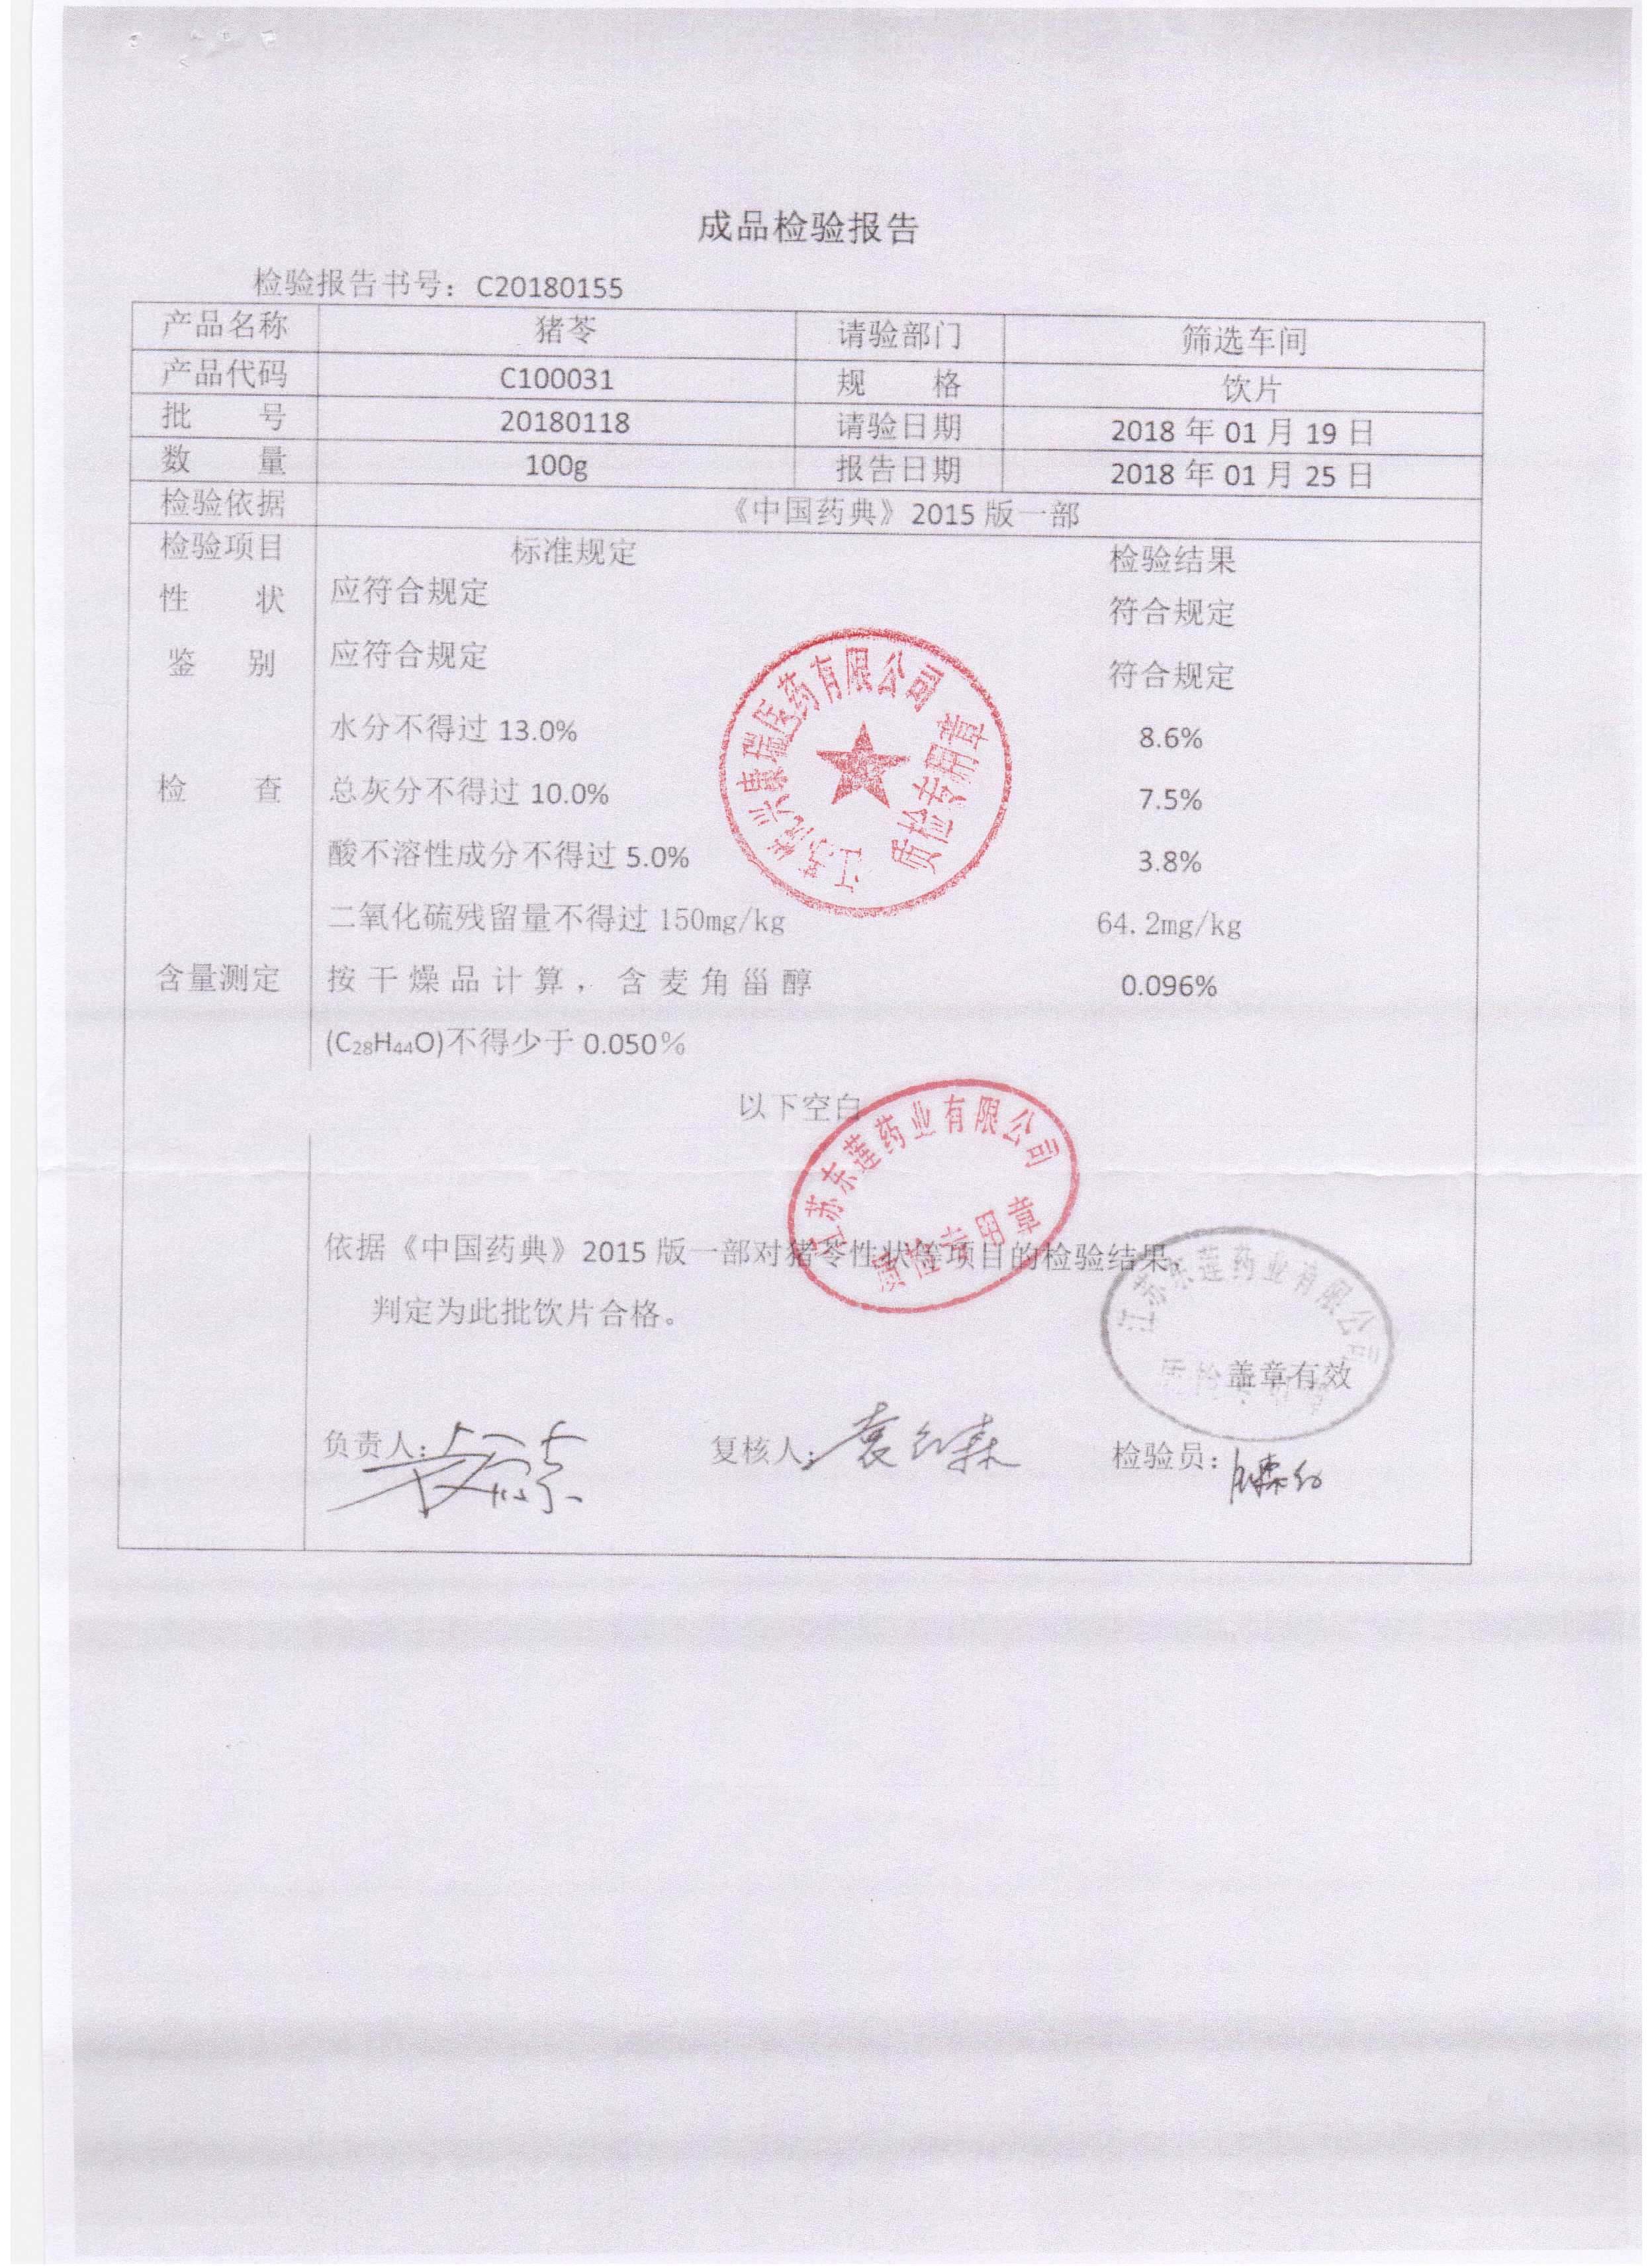 成品检验报告
检验报告书号：C20180155
产品名称 猪苓 请验部门 筛选车间
产品代码 C100031 规 格 饮片
批 号 20180118 请验日期 2018 年 01 月 19 日
数 量 100g 报告日期 2018 年 01 月 25 日
检验依据 《中国药典》2015 版一部
检验项目 标准规定 检验结果
性 状 应符合规定 符合规定
鉴 别 应符合规定 符合规定
水分不得过 13.0% 8.6%
检 查 总灰分不得过 10.0% 7.5%
酸不溶性成分不得过 5.0% 3.8%
二氧化硫残留量不得过 150mg/kg 64.2mg/kg
含量测定 按干燥品计算，含麦角甾醇 0.096%
(C₂₈H₄₄O)不得少于 0.050%
以下空白
医药有限公司
质检专用章
江苏东莲药业有限公司
质检专用章
依据《中国药典》2015 版一部对猪苓性状等项目的检验结果，
判定为此批饮片合格。
江苏东莲药业有限公司
盖章有效
负责人： 复核人： 检验员：